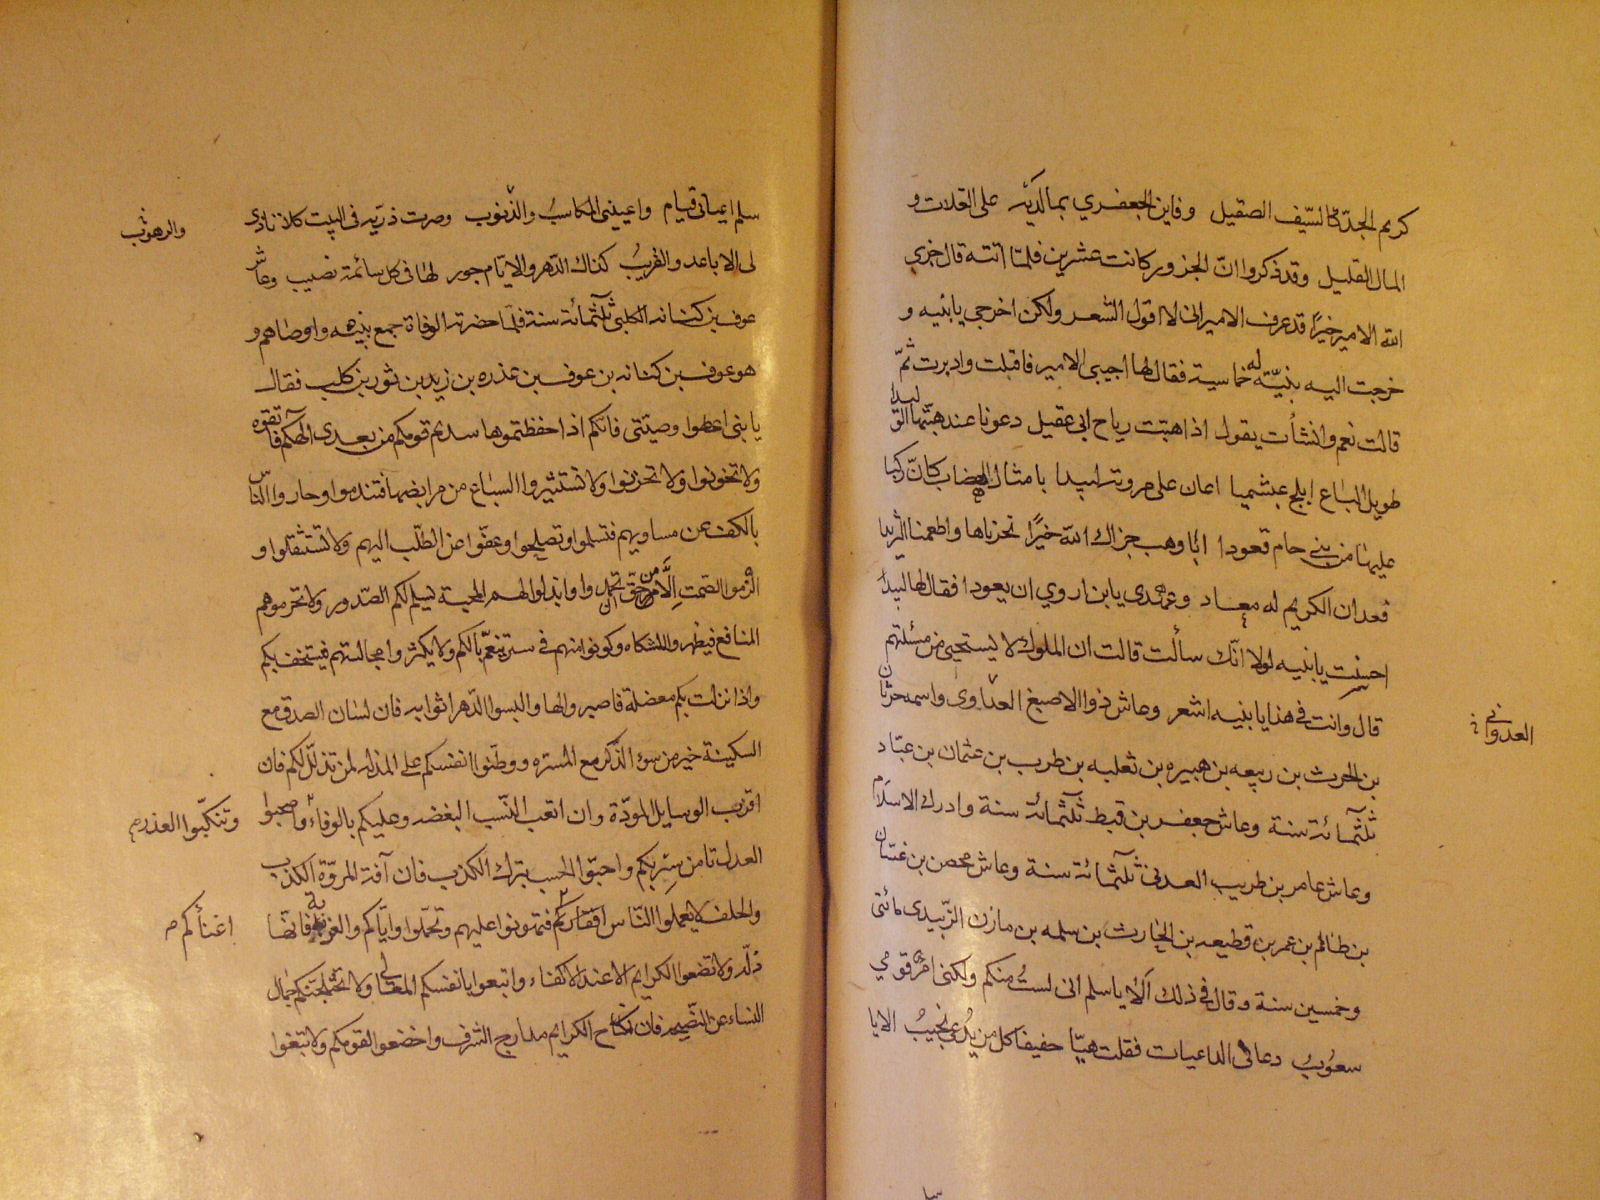 كريم الجدّ كالسّيف الصقيل وفا ابن الجعفري بما لديه على العلات و
المال القليل وقد ذكروا انّ الجزور كانت عشرين فلمّا اتته قال جزي
الله الامير خيرًا قد عرف الامير انى لا اقول الشعر ولكن اخرجي يا بنيه و
خرجت اليه بنيّة له خماسية فقال لها اجيبى الامير فاقبلت وادبرت ثمّ
قالت نعم وانشأت يقول اذا هبّت رياح ابى عقيل دعونا عند هبّتها الوليدا
طويل الباع ابلج عبشميا اعان على مروته لبيدا بامثال الهضاب كانّ ركبا
عليها من بنى حام قعودا ابا وهب جزاك الله خيرًا نحرناها واطعمنا الثريدا
فعد ان الكريم له معاد وعهدى يابن اروي ان يعودا فقال لها لبيد
احسنت يا بنيه لولا انّك سألت قالت ان الملوك لا يستحيى من مسئلتهم
قال وانت فى هذا يا بنيه اشعر وعاش ذوالاصبغ العذاوى واسمه حرثان
العدوانى خ
بن الحرث بن ربيعه بن هبيره بن ثعلبه بن ظرب بن عثمان بن عبّاد
ثلثمائة سنة وعاش جعفر بن قبط ثلثمائة سنة وادرك الاسلام
وعاش عامر بن ظريب العدنى ثلثمائة سنة وعاش محصن بن غسّان
بن ظالم بن عمر بن قطيعه بن الحارث بن سلمه بن مازن الزّبيدى مائتى
وخمسين سنة وقال فى ذلك الا يا سلم انى لستُ منكم ولكنى امرؤ قومي
سعوبُ دعانى الداعيات فقلت هيّا حفيفا كل من يُدعى يجيبُ الايا
سلم اعيانى قيام واعيينى المكاسبُ والذنوب وصرت ذريّه فى البيت كلا تاذى
والرهوب خ
لى الاباعد والقريبُ كذاك الدّهر والايّام جور لها فى كل سائمة نصيب وعاش
عوف بن كنانه الكلبى ثلثمائة سنة فلمّا حضرته الوفاة جمع بنيه واوصاهم و
هو عوف بن كنانه بن عوف بن عذره بن زيد بن ثور بن كلب فقال
يا بنى احفظوا وصيّتى فانّكم اذا حفظتموها سدتم قومكم من بعدى الهكم فاتقوه
ولا تخونوا ولا تحزنوا ولا تستثيروا السباع من مرابضها فتندموا وجاروا الناسّ
بالكف عن مساويهم فتسلموا وتصلحوا وعفّوا عن الطّلب اليهم ولا تستثقلوا و
الزموا الصّمت الّا من حقّ تحمدوا وابذلوا لهم المحبة تسلم لكم الصّدور ولا تحرموهم
المنافع فيظهروا الشكاه وكونوا منهم فى ستر ينعّم بالكم ولا يكثروا مجالستهم فيستخف بكم
واذا نزلت بكم معضلة فاصبروا لها والبسوا الدّهر اثوابه فان لسان الصدق مع
السكينة خير من سوء الذّكر مع المسّره ووطّنوا انفسكم على المذلّه لمن تذلّل لكم فان
اقرب الوسايل المودّة وان اتعب النّسب البغضه وعليكم بالوفاء واصحبوا
وتنكّبوا العذر م
العدل تامن سربكم واحيّوا الحسب بترك الكذب فان آفة المروّة الكذب
والخلف لا يعلموا النّاس افقاركم فتهونوا عليهم وتخملوا وايّاكم والغربة فانّها
اغنأكم م
ذلّه ولا تضعوا الكرايم الا عند الاكفاء وابتغوا بانفسكم المعالى ولا تختلجنّكم جمال
النساء عن الصّحيّه فان نكاح الكرايم مدارج الشرف واخضعوا لقومكم ولا تبغوا